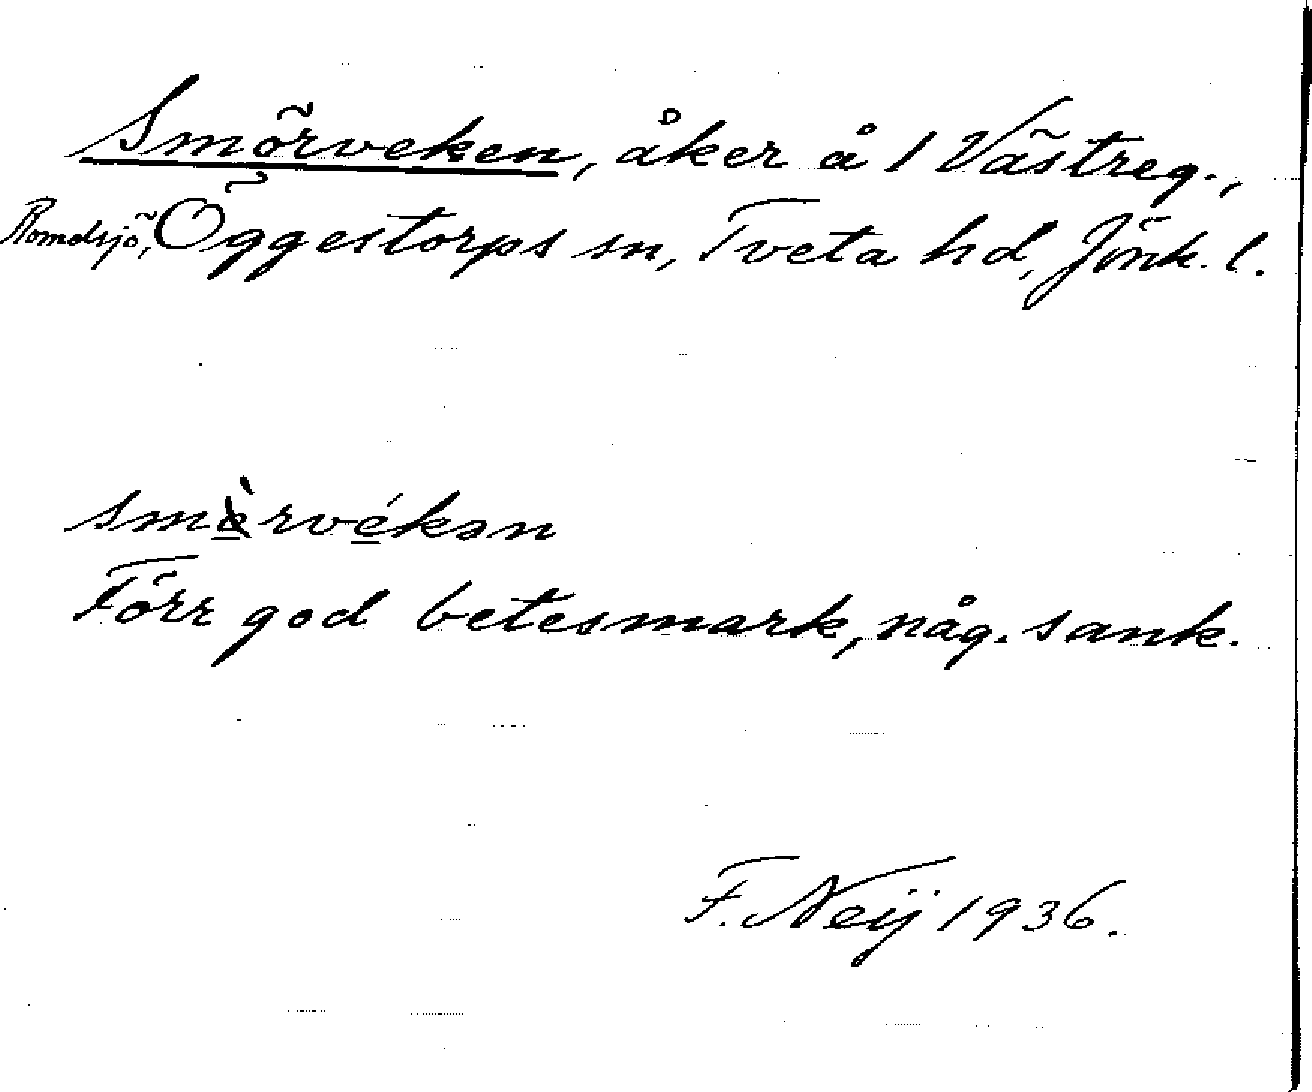 Smörveken, åker å 1 Västreg.,
Romdsjö, Öggestorps sn, Tveta hd, Jönk. l.
smèrvékən
Förr god betesmark, någ. sank.
F. Neij 1936.